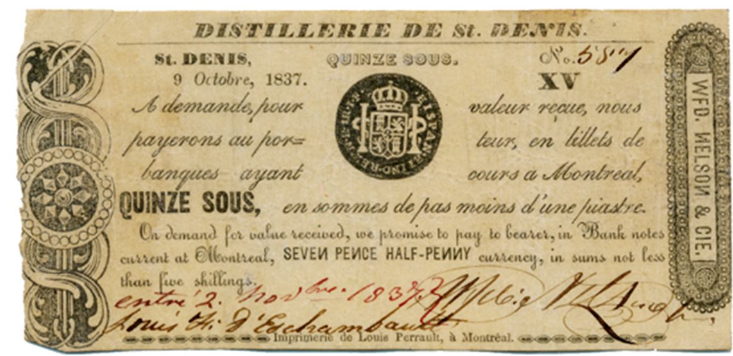 DISTILLERIE DE St. DENIS.
St. DENIS, QUINZE SOUS. No. 5871
9 Octobre, 1837. XV
A demande, pour valeur reçue, nous
payerons au por= teur, en billets de
banques ayant cours a Montreal,
QUINZE SOUS, en sommes de pas moins d'une piastre.
On demand for value received, we promise to pay to bearer, in Bank notes
current at Montreal, SEVEN PENCE HALF-PENNY currency, in sums not less
than five shillings.
entré 2. Novbre. 1837
Louis
Imprimerie de Louis Perrault, à Montréal.
WFD. NELSON & CIE.